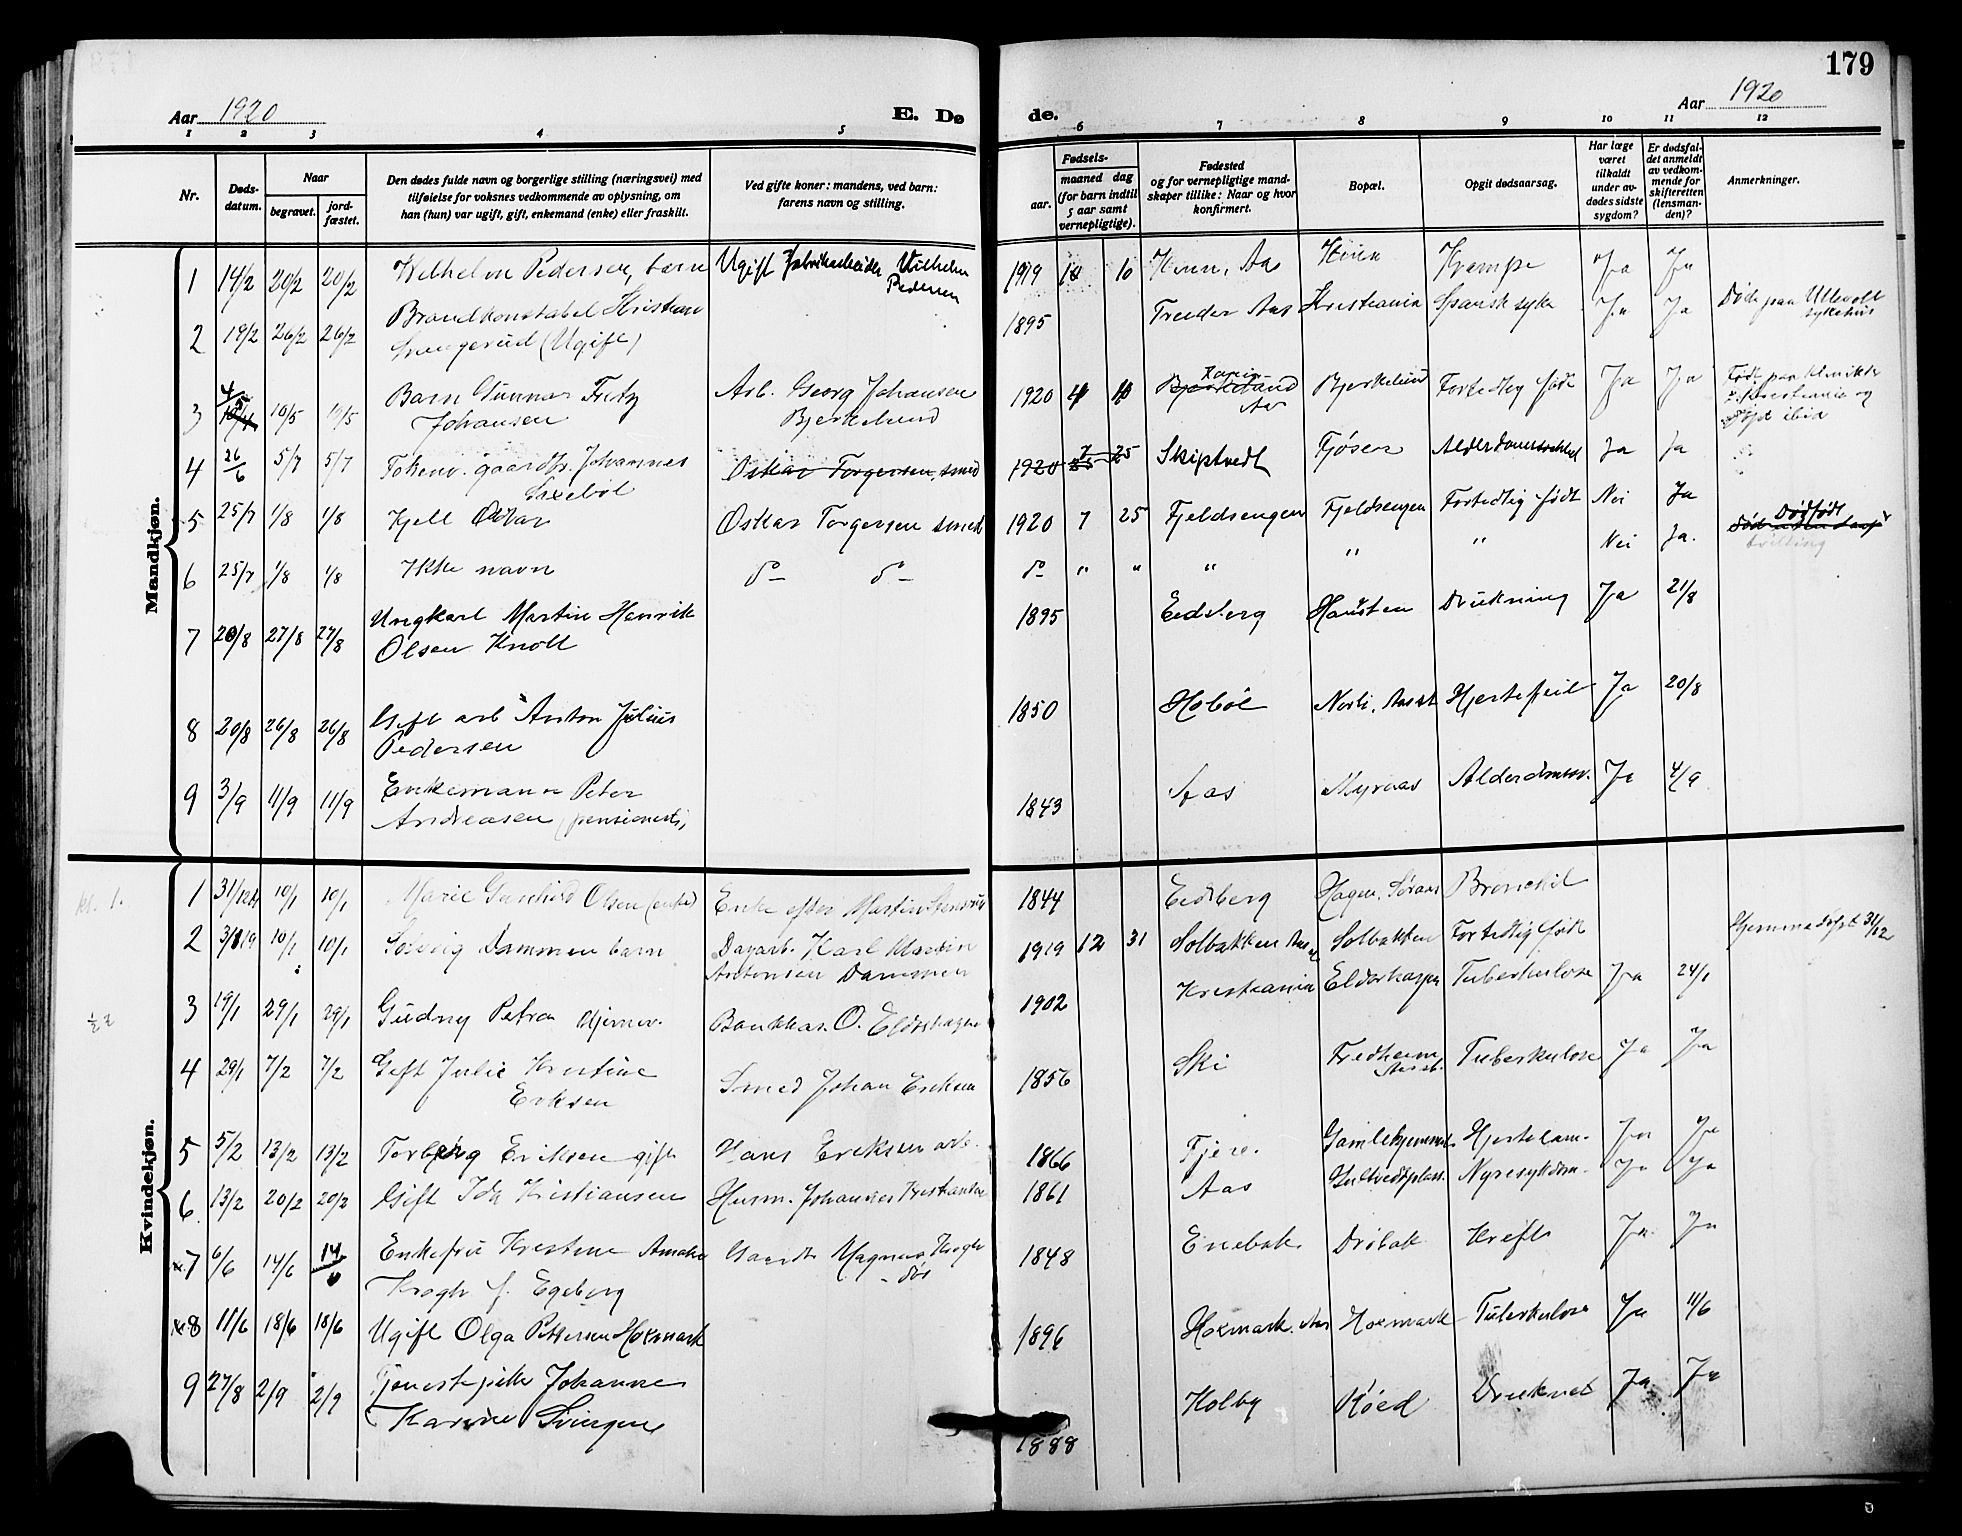 179
Aar 1920
E. Dø
de.
Aar 1920
1 2 3 4 5 6 7 8 9 10 11 12
Nr.
Døds-
datum.
Naar
begravet.
jord-
fæstet.
Den dødes fulde navn og borgerlige stilling (næringsvei) med
tilføielse for voksnes vedkommende av oplysning, om
han (hun) var ugift, gift, enkemand (enke) eller fraskilt.
Ved gifte koner: mandens, ved barn:
farens navn og stilling.
Fødsels-
aar.
maaned dag
(for barn indtil
5 aar samt
vernepligtige).
Fødested
og for vernepligtige mand-
skaper tillike: Naar og hvor
konfirmert.
Bopæl.
Opgit dødsaarsag.
Har læge
været
tilkaldt
under av-
dødes sidste
sygdom?
Er dødsfal-
det anmeldt
av vedkom-
mende for
skifteretten
(lensman-
den)?
Anmerkninger.
Mandkjøn.
1 14/2 20/2 20/2 Wilhelm Pedersen, barn Ugift Fabrikarbeider Vilhelm
Pedersen 1919 10 10 Aas Krampe Ja Ja
2 19/2 26/2 26/2 Brandkonstabel Kristian
(Ugift) 1895 Treider Aas Kristiania Spansk syke Ja Ja Døde paa Ullevold
sykehus
3 4/5 10/5 10/5 Barn Gunnar Fritz
Johansen Arb. Georg Johansen
Bjerkelund 1920 4 Aas Bjerkelund Fortidlig født Ja Ja Født paa klinikk
i Kristiania og
død ibid
4 26/6 5/7 5/7 gaardbr. Johannes
Saxebøl Oskar Torgersen, smed 1920 7 25 Skiptvedt Tjøsen Ja Ja
5 25/7 1/8 1/8 Kjell Oskar Oskar Torgersen smed 1920 7 25 Fjeldsengen Fjeldsengen Fortidlig født Nei Ja Dødfødt
tvilling
6 25/7 1/8 1/8 Ikke navn do do do " " " " " Nei Ja.
7 20/8 27/8 27/8 Ungkarl Martin Henrik
Olsen Knoll 1895 Eidsberg Haugsten Drukning Ja 21/8
8 20/8 26/8 26/8 Gift arb Anton Julius
Pedersen 1850 Hobøl Nordli, Aas st Hjertefeil Ja 20/8
9 3/9 11/9 11/9 Enkemann Peter
Andreasen (pensionist) 1843 Aas Myraas Alderdomsv. Ja 4/9
Kvindekjøn.
1 31/12 10/1 10/1 Marie Gunhild Olsen (enke) Enke efter Martin 1844 Eidsberg Hagen, Søraas Bronchit
2 31/12 19 10/1 10/1 Solveig Dammen barn Dagarb. Karl Martin
Antonsen Dammen 1919 12 31 Solbakken Aas Solbakken Fortidlig født Hjemmedøpt 31/12
3 19/1 29/1 29/1 Gudny Petra hjemmev. Bankkas. O. Eldorhagen 1902 Kristiania Eldorhagen Tuberkulose Ja 24/1
4 29/1 7/2 7/2 Gift Julie Kristine
Eriksen Smed Johan Eriksen 1856 Ski Fredheim
Aas st. Tuberkulose Ja Ja
5 5/2 13/2 13/2 Torborg Eriksen gift Hans Eriksen arb. 1866 Fjære. Gamlehjemmet Hjertelam. Ja Ja
6 13/2 20/2 20/2 Gift Ida Kristiansen Husm. Johannes Kristiansen 1861 Aas Nyresykdom. Ja Ja
7 6/6 14/6 14/6 Enkefru Kristine Amalie
Krogh f. Egeberg Gaardb Magnus Krogh
1848 Enebak Drøbak Kreft Ja Ja
8 11/6 18/6 18/6 Ugift Olga Pettersen Hoxmark 1896 Hoxmark. Aas Hoxmark Tuberkulose Ja 11/6
9 27/8 2/9 2/9 Tjenestepike Johanne
Karine Svingen 1888 Kolby Røed Druknet Ja Ja